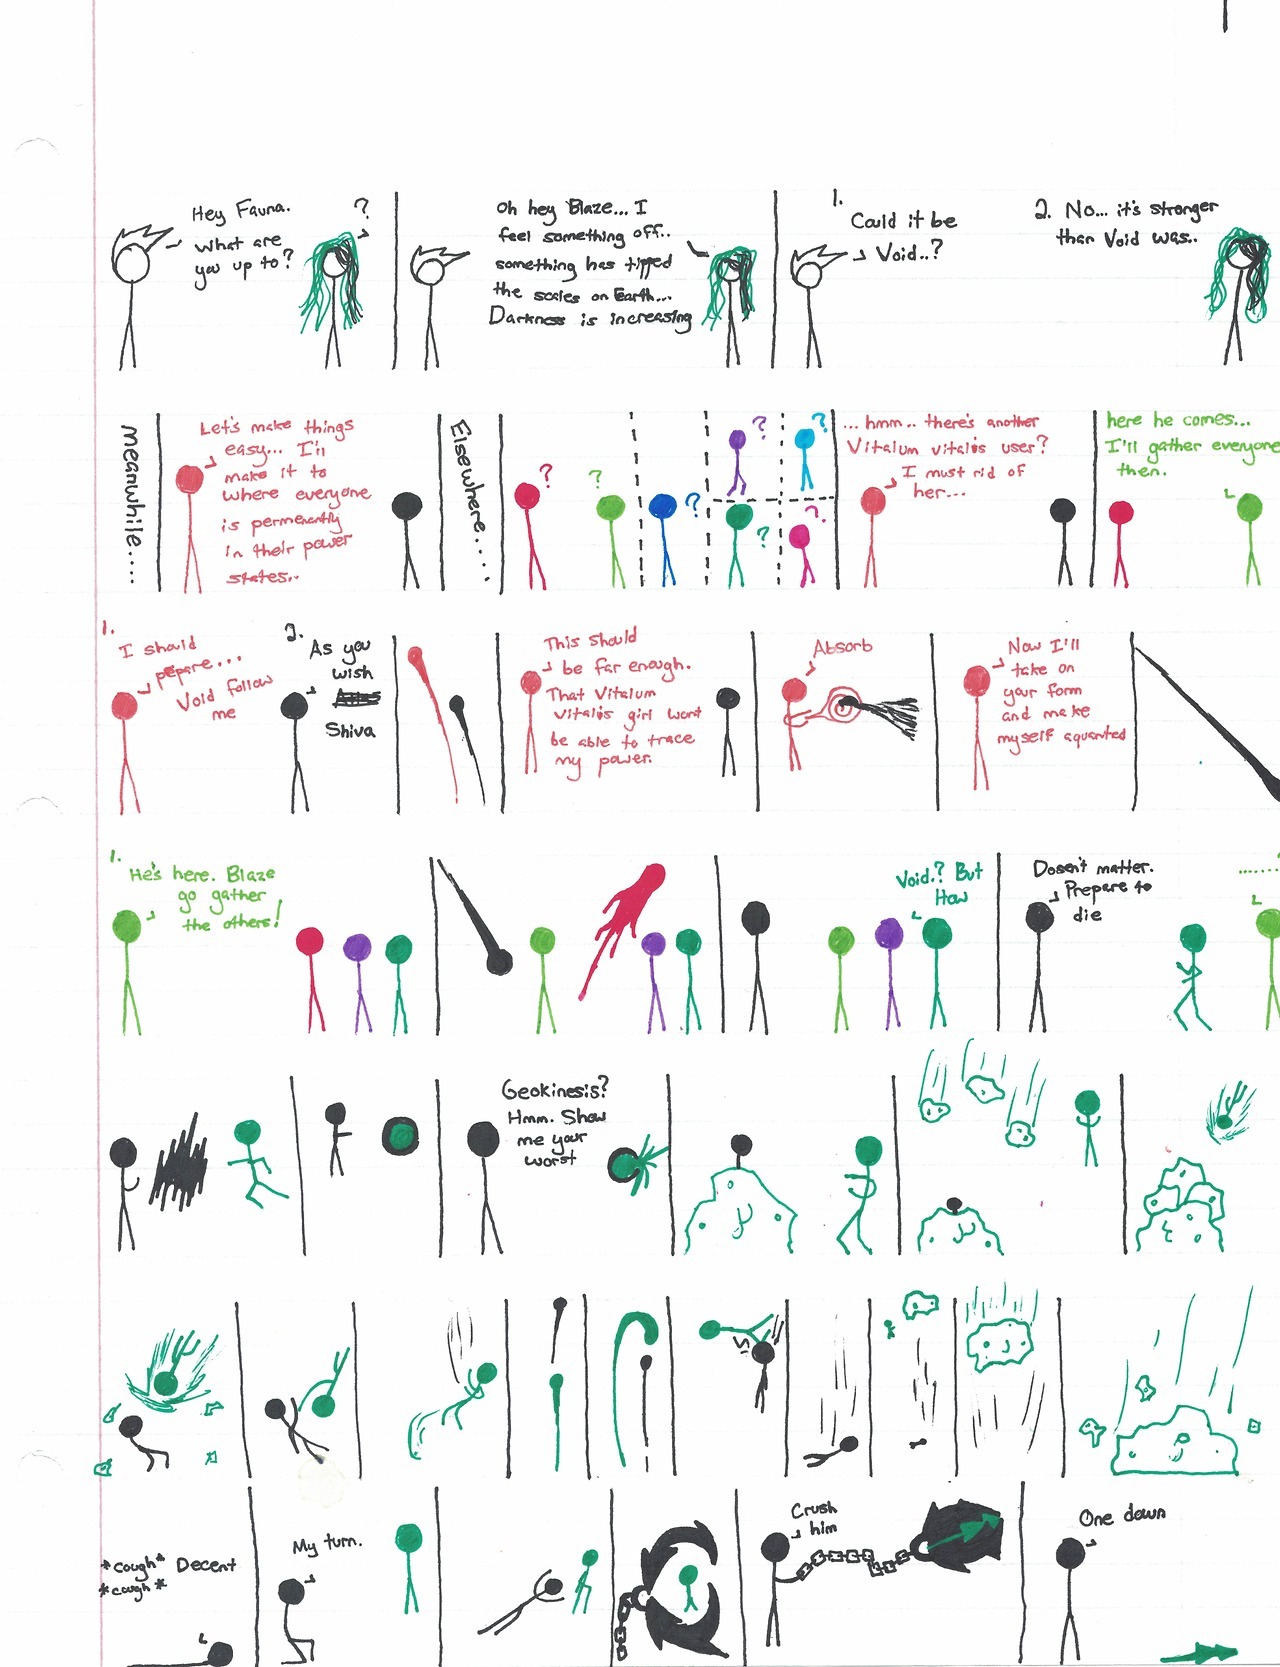 Hey Fauna.
What are
you up to?
?
Oh hey Blaze... I
feel something off..
something has tipped
the scales on Earth...
Darkness is increasing
1.
Could it be
Void..?
2. No... it's stronger
than Void was..
meanwhile....
Let's make things
easy... I'll
make it to
where everyone
is permenantly
in their power
states..
Elsewhere....
?
?
?
?
?
?
...hmm.. there's another
Vitalum vitalis user?
I must rid of
her...
here he comes...
I'll gather everyone
then.
1.
I should
pepare...
Void follow
me
2.
As you
wish
Shiva
This should
be far enough.
That Vitalum
Vitalis girl wont
be able to trace
my power.
Absorb
Now I'll
take on
your form
and make
myself aquanted
1.
He's here. Blaze
go gather
the others!
Void? But
How
Dosen't matter.
Prepare to
die
......
Geokinesis?
Hmm. Show
me your
worst
*cough* Decent
*cough*
My turn.
Crush
him
One down